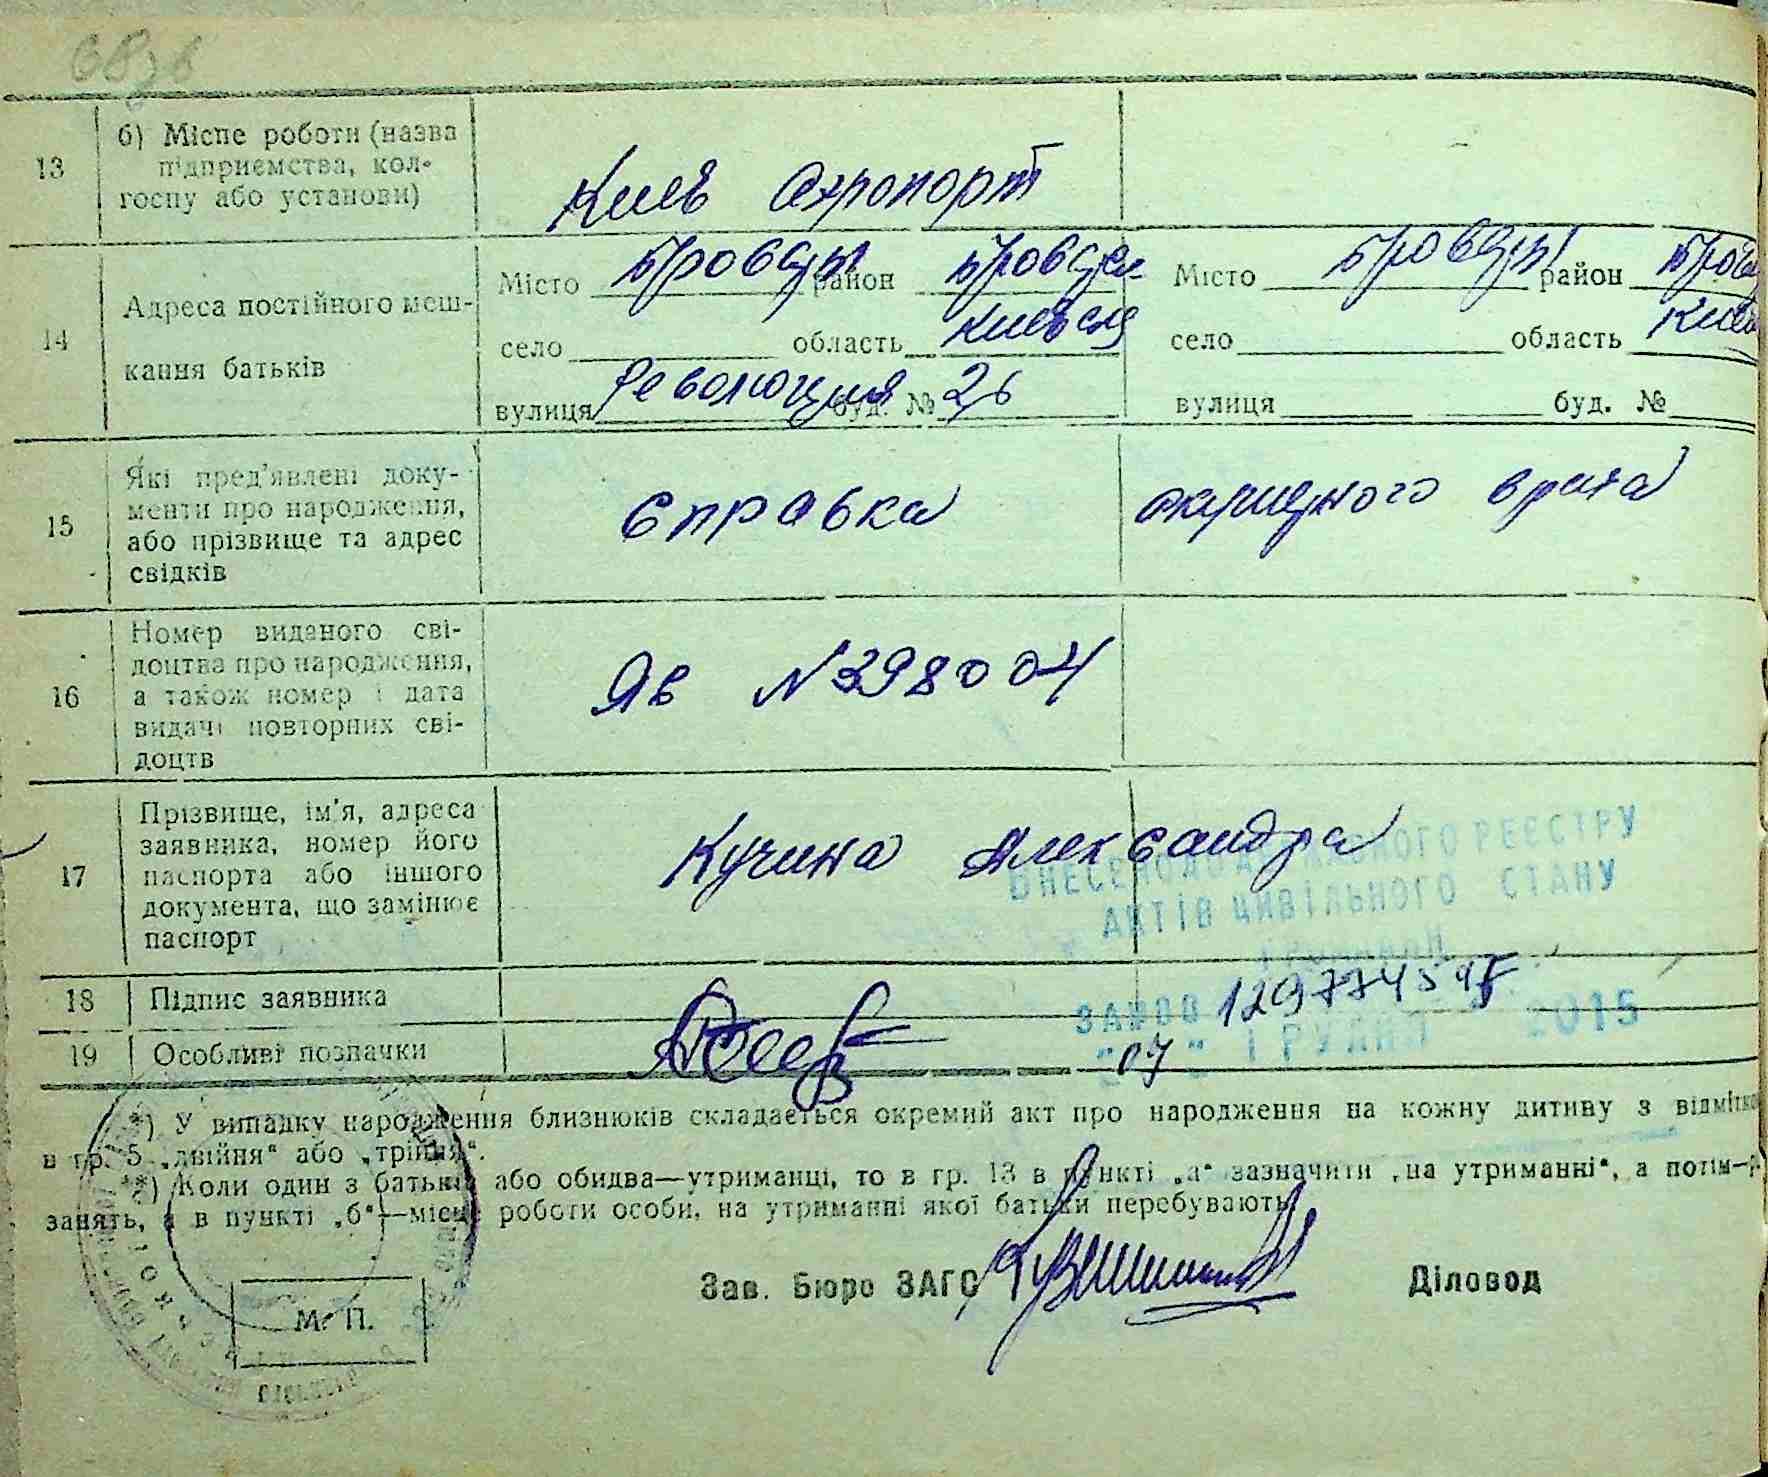 13
б) Місце роботи (назва
підприємства, кол-
госпу або установи)
Киев Аэропорт
14
Адреса постійного меш-
кання батьків
Місто Бровары район Бровар
село область Киевск
вулиця Революция буд. № 26
Місто Бровары район Бров
село область Киев
вулиця буд. №
15
Які пред'явлені доку-
менти про народження,
або прізвище та адрес
свідків
Справка акушерного врача
16
Номер виданого сві-
доцтва про народження,
а також номер і дата
видачі повторних сві-
доцтв
Яв №398004
17
Прізвище, ім'я, адреса
заявника, номер його
паспорта або іншого
документа, що замінює
паспорт
Кучина Александра
ВНЕСЕНО ДО ДЕРЖАВНОГО РЕЄСТРУ
АКТІВ ЦИВІЛЬНОГО СТАНУ
ГРОМАДЯН
18
Підпис заявника
19
Особливі позначки
07 ГРУДНЯ 2015
*) У випадку народження близнюків складається окремий акт про народження на кожну дитину з відміткою
в гр. 5 „двійня“ або „трійня“.
**) Коли один з батьків або обидва—утриманці, то в гр. 13 в пункті „а“ зазначити „на утриманні“, а потім—
занять, а в пункті „б“—місце роботи особи, на утриманні якої батьки перебувають.
Зав. Бюро ЗАГС
Діловод
М. П.